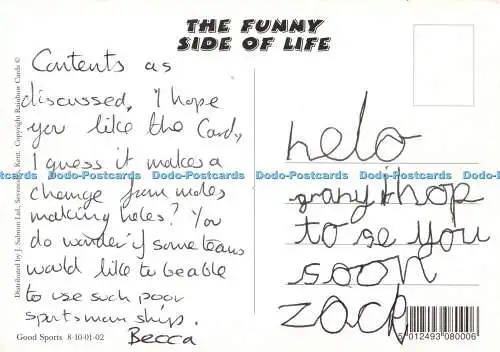 THE FUNNY
SIDE OF LIFE
Contents as
discussed, I hope
you like the Card,
I guess it makes a
change from moles
making holes? You
do wonder if some teams
would like to be able
to use such poor
sportsman ship.
Becca
helo
grany i hop
to se you
soon
zack
Distributed by J. Salmon Ltd., Sevenoaks, Kent. Copyright Rainbow Cards ©
Good Sports 8-10-01-02
5 012493 080006
Dodo-Postcards Dodo-Postcards Dodo-Postcards Dodo-Postcards Dodo-Postcards
Dodo-Postcards Dodo-Postcards Dodo-Postcards Dodo-Postcards Dodo-Postcards